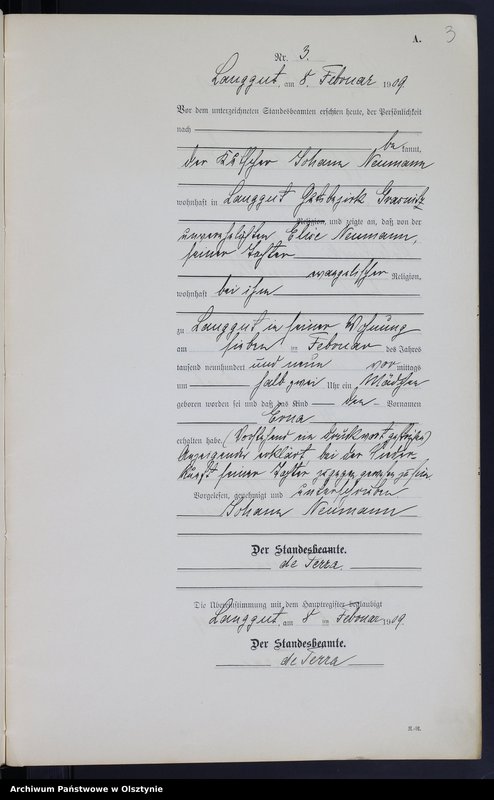 3
A.
Nr. 3.
Langgut, am 8. Februar 1909
Vor dem unterzeichneten Standesbeamten erschien heute, der Persönlichkeit
nach
be kannt,
der Kutscher Johann Neumann
wohnhaft in Langgut Gutsbezirk Grasnitz
Religion, und zeigte an, daß von der
unverehelichten Elise Neumann,
seiner Tochter
evangelischer Religion,
wohnhaft bei ihm
zu Langgut in seiner Wohnung
am sieben ten Februar des Jahres
tausend neunhundert und neun vor mittags
um halb zwei Uhr ein Mädchen
geboren worden sei und daß das Kind den Vornamen
Erna
erhalten habe. (Vorstehend ein Druckwort gestrichen)
Anzeigender erklärt, bei der Nieder-
kunft seiner Tochter zugegen gewesen zu sein
Vorgelesen, genehmigt und unterschrieben
Johann Neumann
Der Standesbeamte.
de Terra.
Die Übereinstimmung mit dem Hauptregister beglaubigt
Langgut, am 8 ten Februar 1909.
Der Standesbeamte.
de Terra
Archiwum Państwowe w Olsztynie